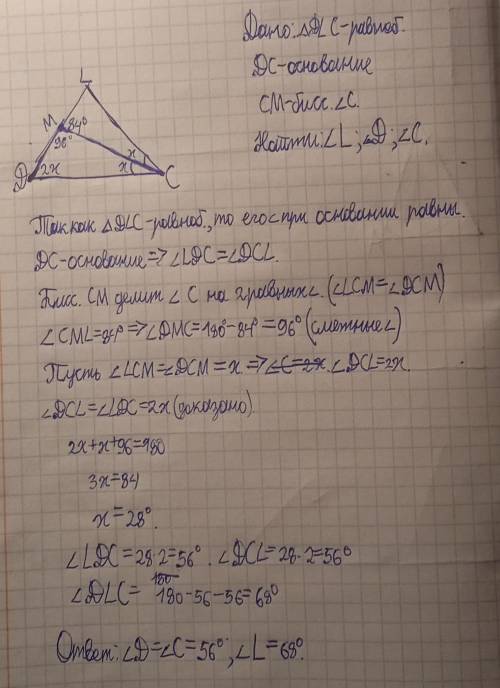 Дано: △DLC-равноб.
DC-основание
CM-бисс. ∠C.
Найти: ∠L; ∠D; ∠C.
L
M 84°
96°
x
D 2x x C
Так как △DLC-равноб., то его ∠ при основании равны.
DC-основание => ∠LDC=∠DCL.
Бисс. CM делит ∠C на 2 равных ∠. (∠LCM=∠DCM)
∠CML=84° => ∠DMC=180°-84°=96° (смежные ∠)
Пусть ∠LCM=∠DCM=x => ∠C=2x. ∠DCL=2x.
∠DCL=∠LDC=2x (доказано)
2x+x+96=180
3x=84
x=28°.
∠LDC=28·2=56°. ∠DCL=28·2=56°
∠DLC= 180-56-56=68°
Ответ: ∠D=∠C=56°, ∠L=68°.